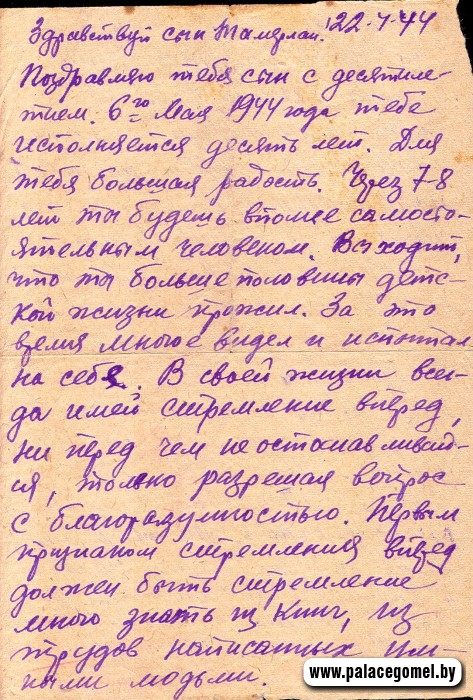 Здравствуй сын Тамерлан. 22-4-44
Поздравляю тебя сын с десятиле-
тием. 6го Мая 1944 года тебе
исполняется десять лет. Для
тебя большая радость. Через 7-8
лет ты будешь вполне самосто-
ятельным человеком. Выходит,
что ты больше половины детс-
кой жизни прожил. За это
время многое видел и испытал
на себе. В своей жизни всег-
да имей стремление вперед,
ни перед чем не останавливай-
ся, только разрешая вопрос
с благоразумностью. Первым
признаком стремления вперед
должен быть стремление
много знать из книг, из
трудов написанных ум-
ными людьми.
www.palacegomel.by